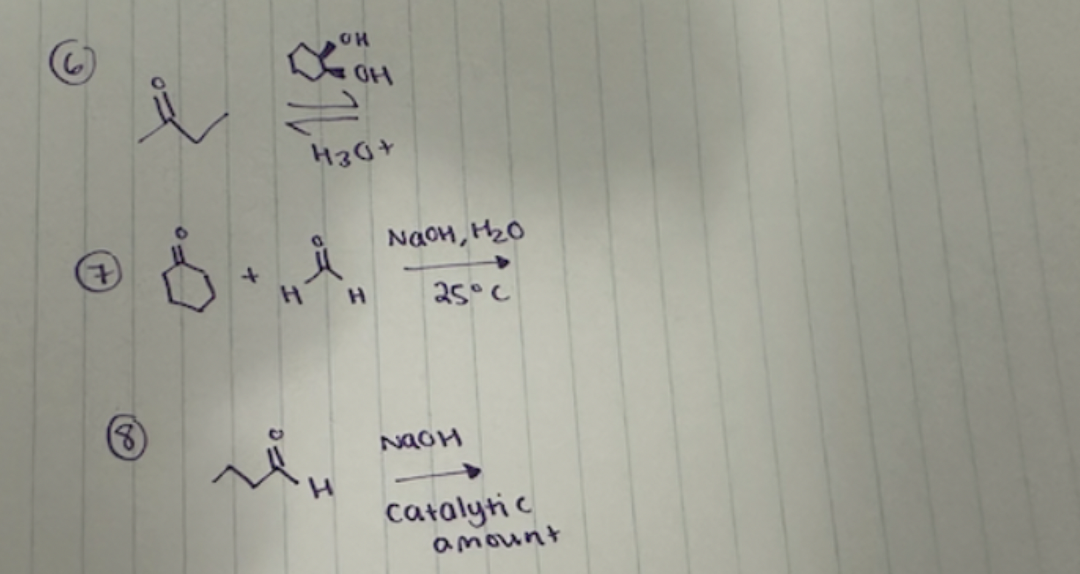 6
OH
OH
O
H3O+
7
O
+
O
H H
NaOH, H2O
25°C
8
O
H
NaOH
catalytic
amount